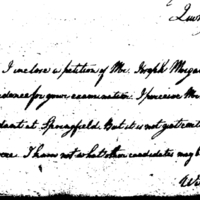 I inclose a petition of Mr. Joseph Morga
dence for your examination. I perceive Mr
dant at Springfield. But it is not yet entir
ere. I know not what other candidates may b